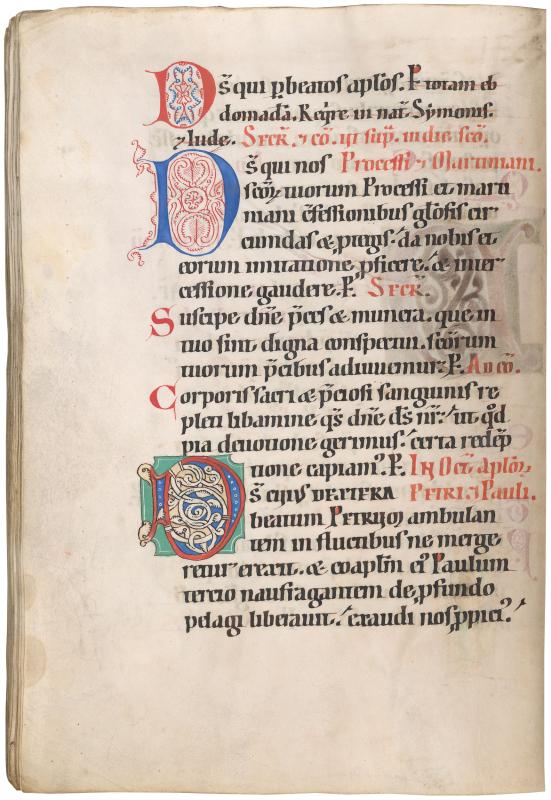 Ds̄ qui p̱ beatos ap̄los. P̶ totam eb
domadā. Reqͬre in nat̄. Symonis.
⁊ Iude. Secr̄. ⁊ cō. ut sup̱. in die scō.
Ds̄ qui nos Processi ⁊ Martiniani.
scōꝝ tuorum Processi et marti
niani c̄fessionibus glōsis cir
cumdas & ꝓtegis. da nobis et
eorum imitatione ꝓficere. & inter
cessione gaudere. P. Secr̄.
Suscipe dn̄e p̄ces & munera. que ut
tuo sint digna conspectui. scōrum
tuorum p̄cibus adiuuemur. P. Ad cō.
Corporis sacri & p̄ciosi sanguinis re
pleti libamine qs̄ dn̄e ds̄ nr̄. ut qd̄
pia deuotione gerimus. certa redēp
tione capiam᷒. P. In Oct̄. aplōꝝ
Ds̄ cuius dextera Petri ⁊ Pauli.
beatum Petrum ambulan
tem in fluctibus ne merge
retur erexit. & coap̄lm ei᷒ Paulum
tercio naufragantem de ꝓfundo
pelagi liberauit. exaudi nos ꝓpici᷒.